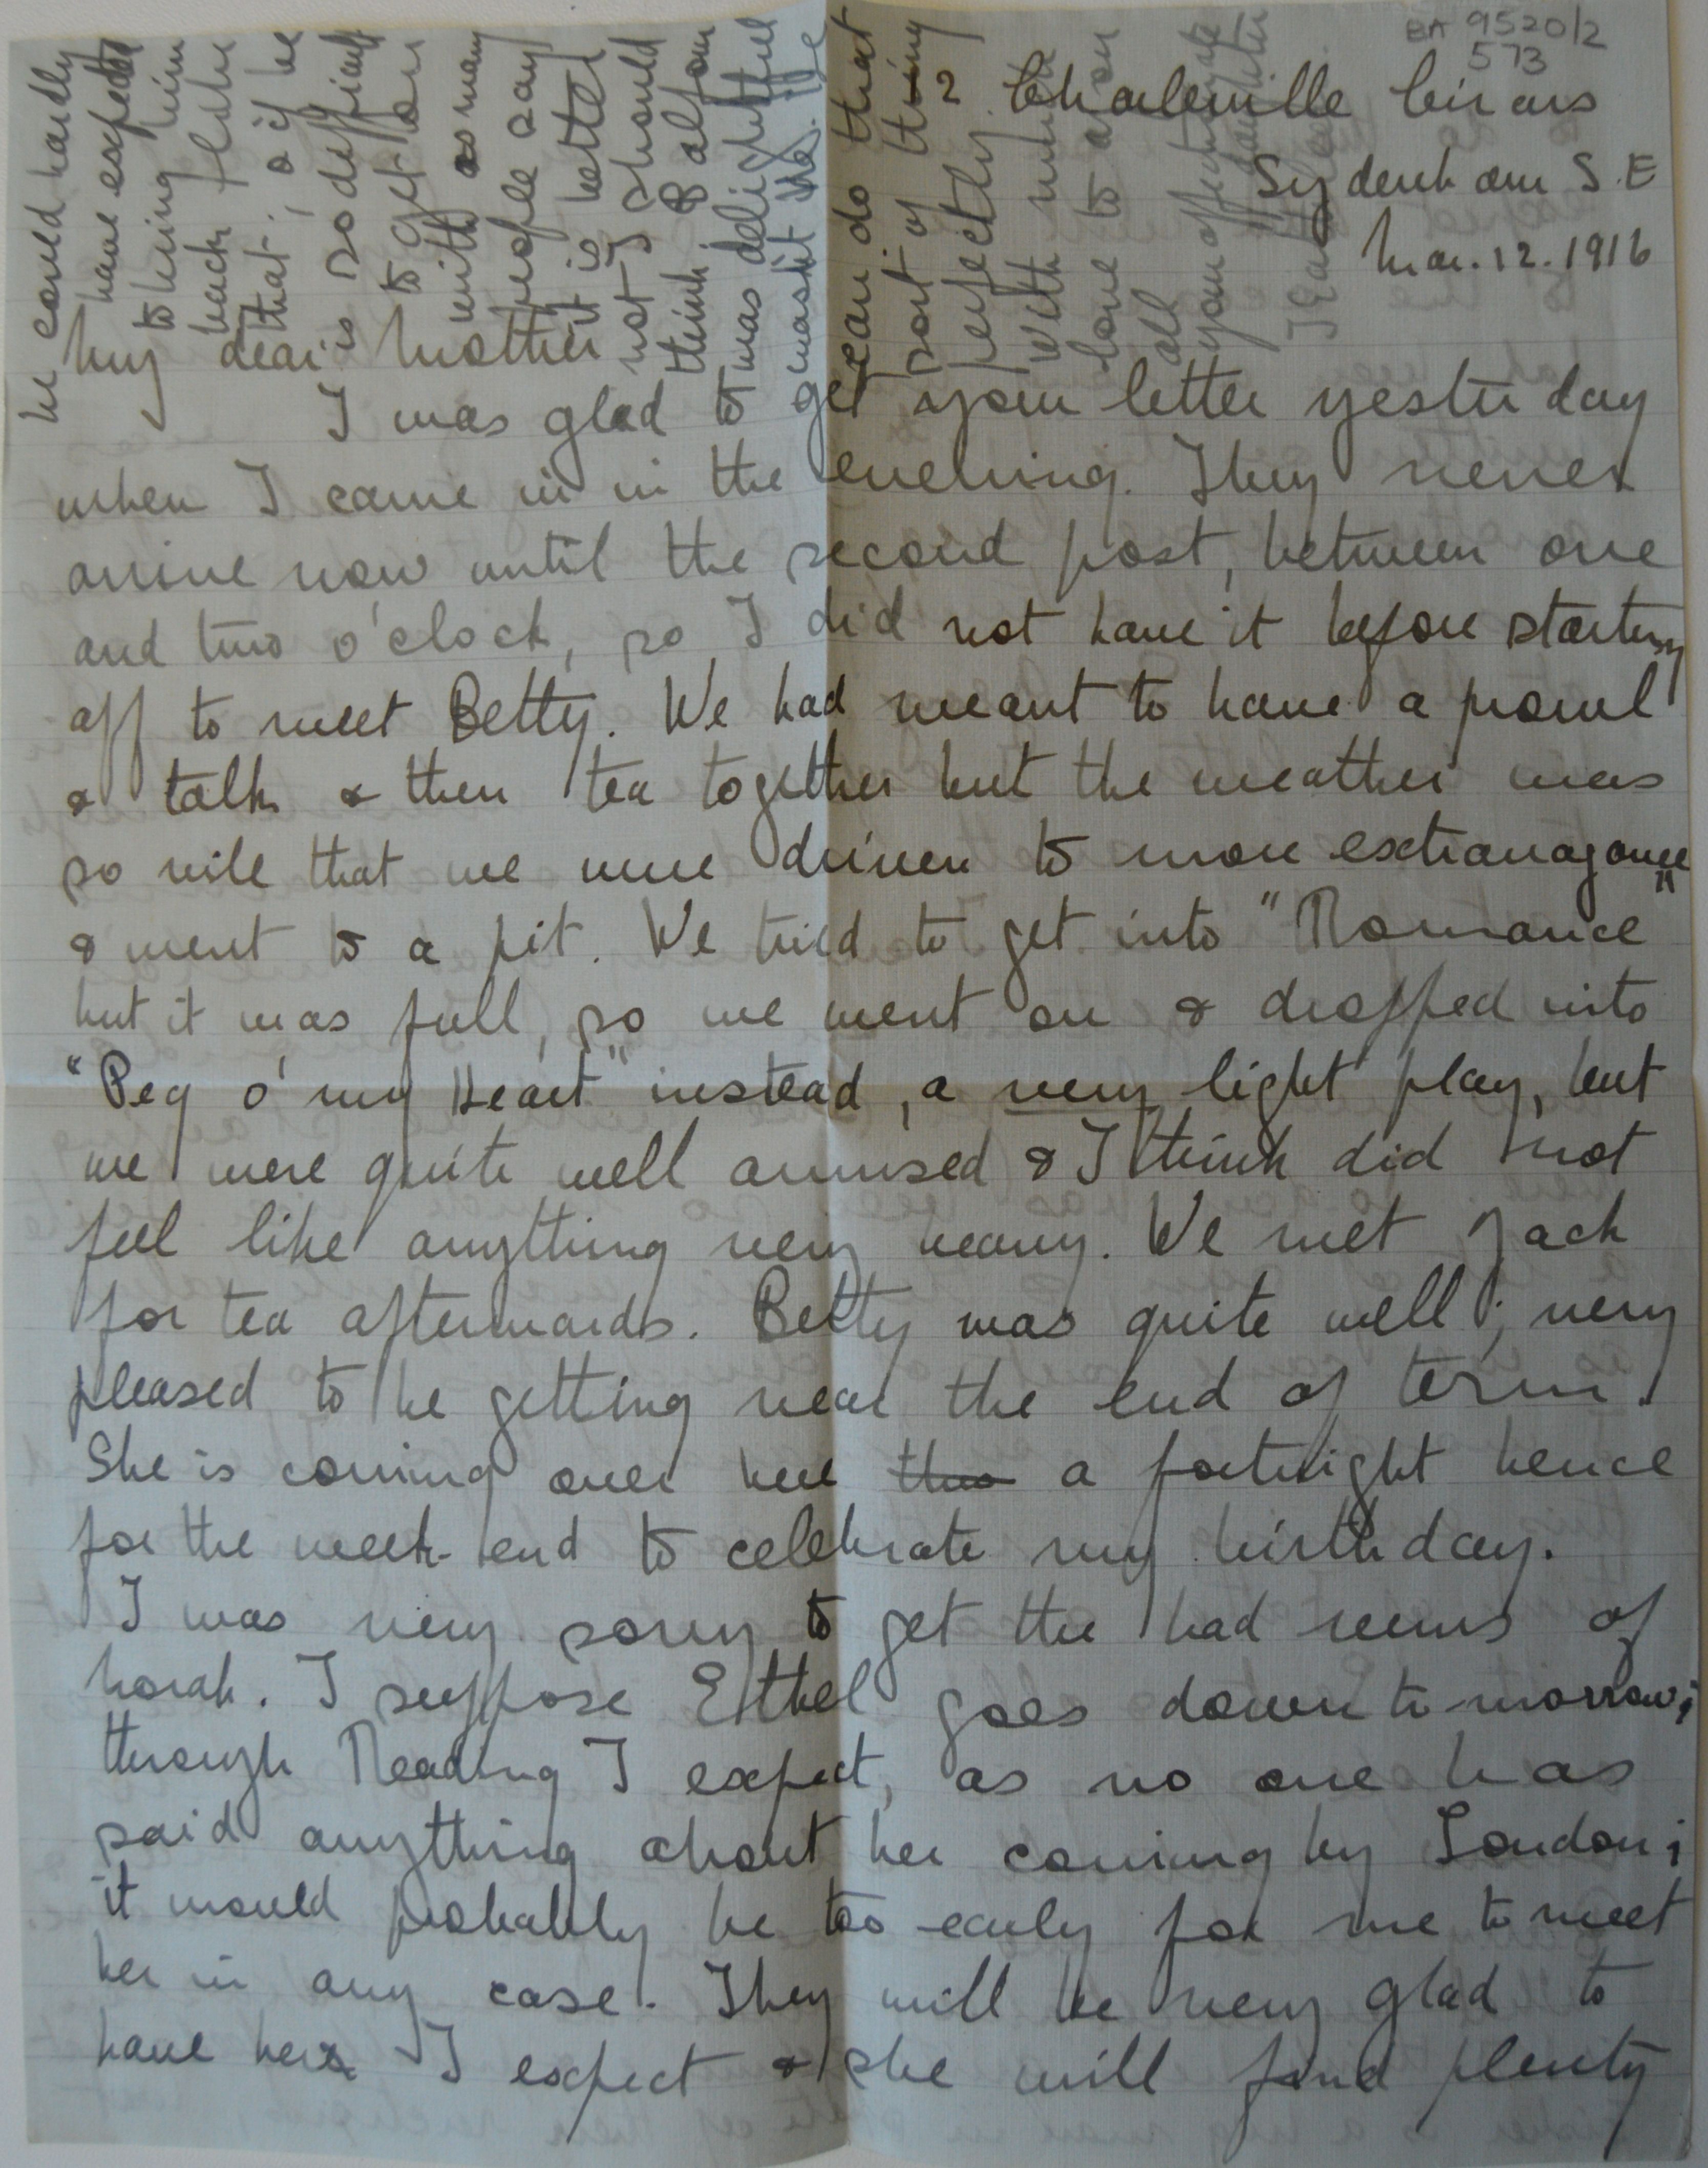 BA 9520/2
573
2 Charleville Circus
Sydenham S.E
Mar. 12. 1916
My dear Mother
I was glad to get your letter yesterday
when I came in in the evening. They never
arrive now until the second post, between one
and two o'clock, so I did not have it before starting
off to meet Betty. We had meant to have a prowl
& talk & then tea together but the weather was
so vile that we were driven to more extravagance
& went to a pit. We tried to get into "Romance"
but it was full, so we went on & dropped into
"Peg o' my Heart" instead, a very light play, but
we were quite well amused & I think did not
feel like anything very heavy. We met Jack
for tea afterwards. Betty was quite well; very
pleased to be getting near the end of term.
She is coming over here a fortnight hence
for the week-end to celebrate my birthday.
I was very sorry to get the bad news of
Norah. I suppose Ethel goes down to-morrow;
through Reading I expect, as no one has
said anything about her coming by London;
it would probably be too early for me to meet
her in any case. They will be very glad to
have her I expect & she will find plenty
he could hardly
have expected
to bring him
back
that, & if he
is so
to get on
with as many
people say
it is better
not I should
think. Balfour
was delightful
wasn't he. He
can do that
sort of thing
perfectly.
With much
love to you
all
your affectionate
daughter